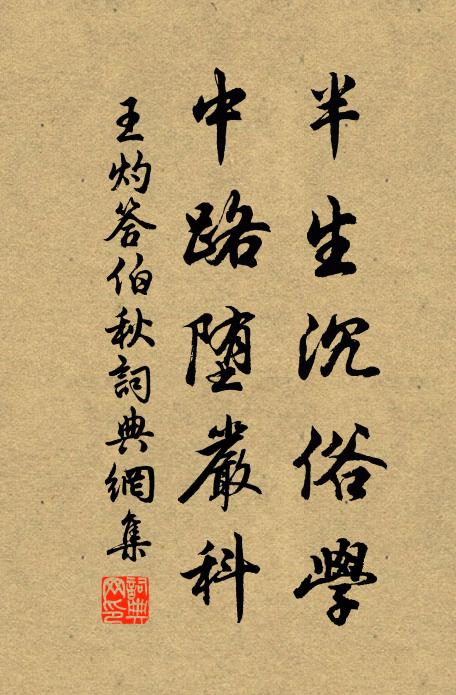 半生沉俗學
中路堕嚴科
王灼答伯秋詞典網集
詞典網印